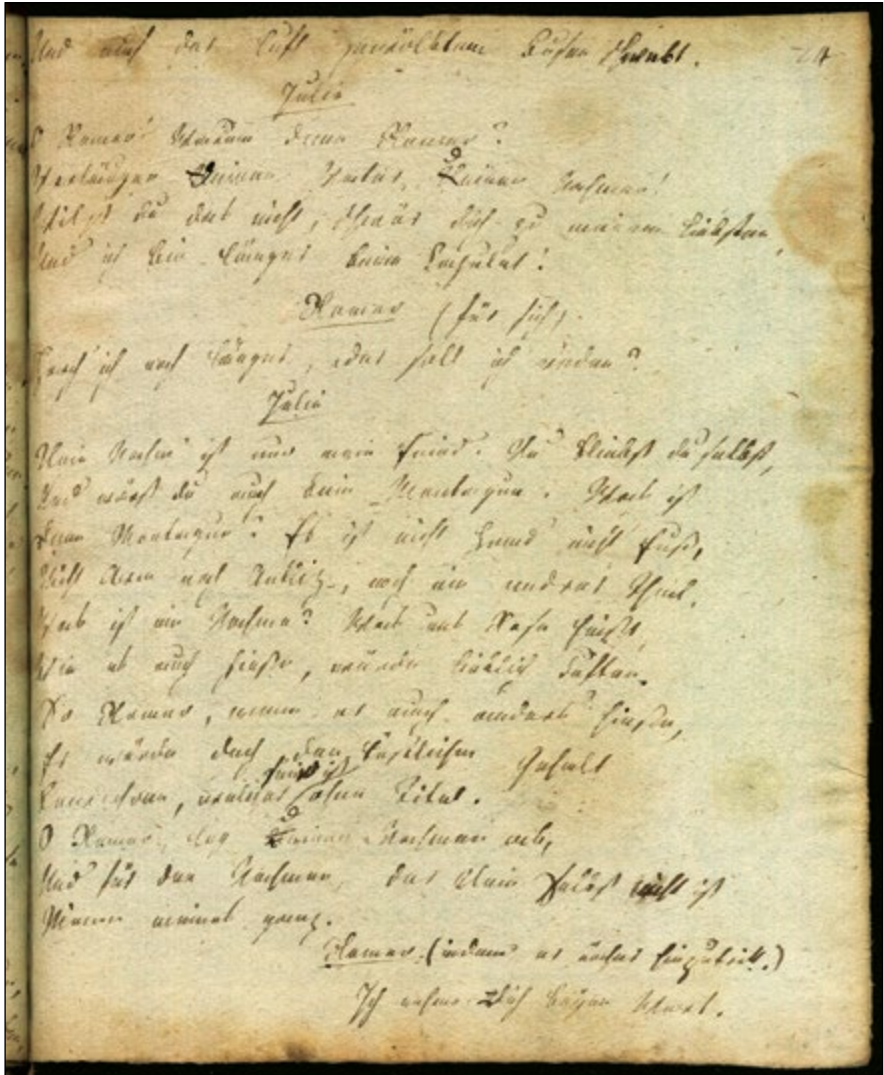 Und auf der Luft gewölbtem Busen schwebt.
Julie
O Romeo! Warum denn Romeo?
Verläugne Deinen Vater, Deinen Nahmen!
Willst du das nicht, schwör dich zu meinem Liebsten,
Und ich bin länger keine Capulet!
Romeo (für sich).
Hör' ich noch länger, oder soll ich reden?
Julie
Dein Nahm' ist nur mein Feind. Du bliebst du selbst,
Und wärst du auch kein Montague. Was ist
Denn Montague? Es ist nicht Hand nicht Fuß,
Nicht Arm noch Antlitz, noch ein andrer Theil.
Was ist ein Nahme? Was uns Rose heißt,
Wie es auch hieße, würde lieblich duften.
So Romeo, wenn er auch anders hieße,
Er würde doch den köstlichen Gehalt
Bewahren, welcher sein ist ohne Titel.
O Romeo, leg Deinen Nahmen ab,
Und für den Nahmen, der Dein Selbst nicht ist
Nimm meines ganz.
Romeo (indem er näher hinzutritt.)
Ich nehme Dich beym Wort.